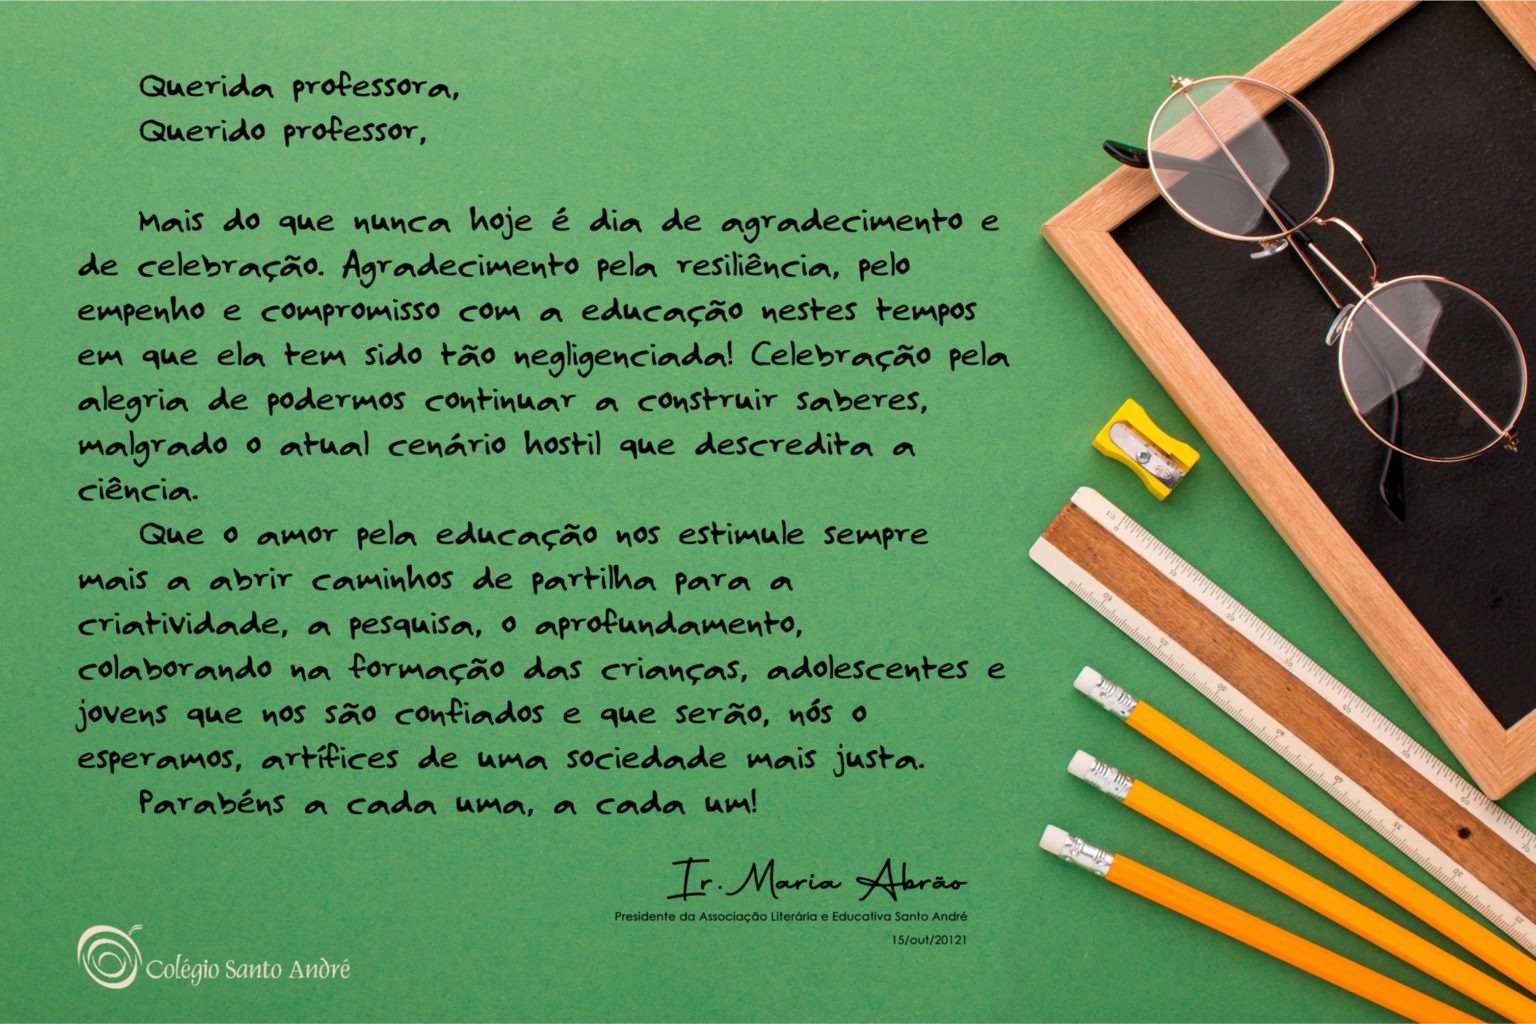 Querida professora,
Querido professor,
Mais do que nunca hoje é dia de agradecimento e
de celebração. Agradecimento pela resiliência, pelo
empenho e compromisso com a educação nestes tempos
em que ela tem sido tão negligenciada! Celebração pela
alegria de podermos continuar a construir saberes,
malgrado o atual cenário hostil que descredita a
ciência.
Que o amor pela educação nos estimule sempre
mais a abrir caminhos de partilha para a
criatividade, a pesquisa, o aprofundamento,
colaborando na formação das crianças, adolescentes e
jovens que nos são confiados e que serão, nós o
esperamos, artífices de uma sociedade mais justa.
Parabéns a cada uma, a cada um!
Ir. Maria Abrão
Presidente da Associação Literária e Educativa Santo André
15/out/20121
Colégio Santo André